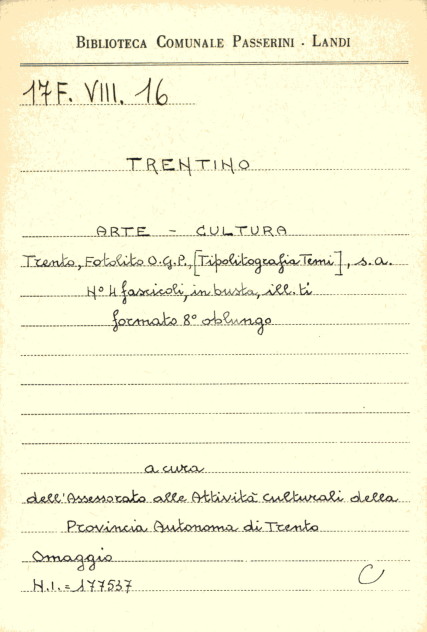 BIBLIOTECA COMUNALE PASSERINI - LANDI
17F. VIII. 16
TRENTINO
ARTE - CULTURA
Trento, Fotolito O.G.P., [Tipolitografia Temi], s.a.
N° 4 fascicoli, in busta, ill.ti
formato 8° oblungo
a cura
dell'Assessorato alle Attività Culturali della
Provincia Autonoma di Trento
Omaggio
N.I. = 177537
C